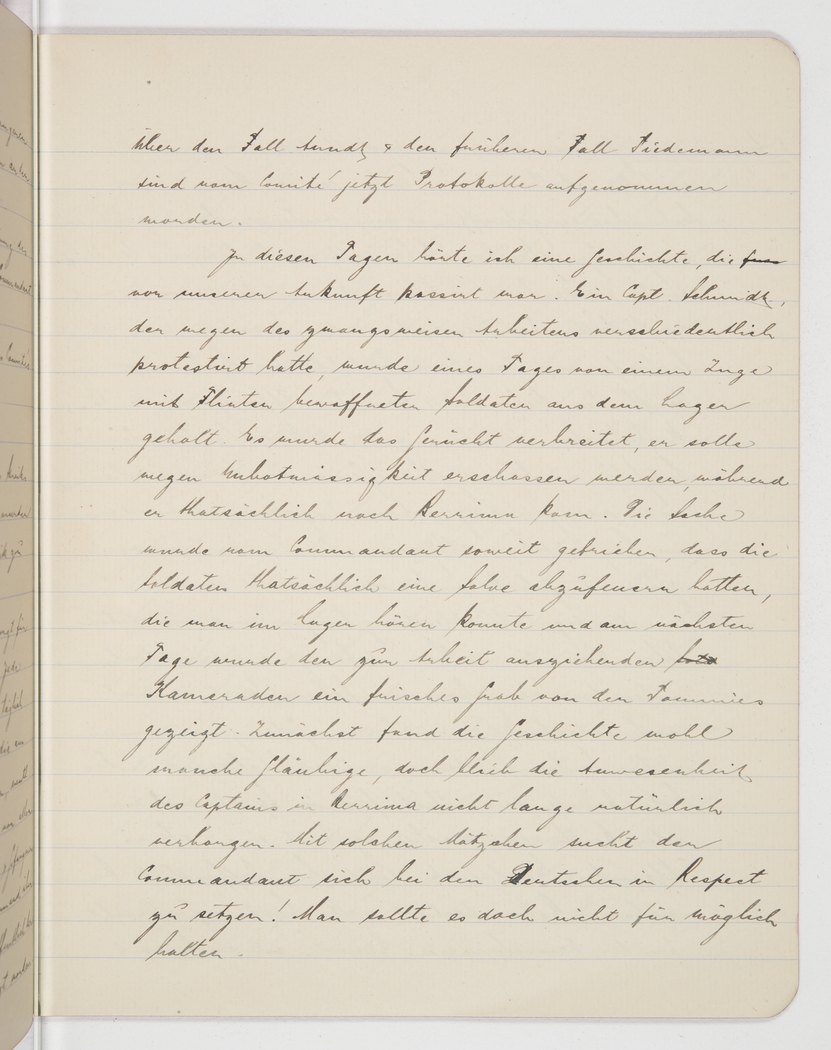 Über den Fall Arndt & den früheren Fall Tiedemann
sind vom Comité jetzt Protokolle aufgenommen
worden.
In diesen Tagen hörte ich eine Geschichte, die
vor unserer Ankunft passirt war. Ein Capt. Schmidt,
der wegen des zwangsweisen Arbeitens verschiedentlich
protestirt hatte, wurde eines Tages von einem Zuge
mit Flinten bewaffneter Soldaten aus dem Lager
geholt. Es wurde das Gerücht verbreitet, er solle
wegen Unbotmässigkeit erschossen werden, während
er thatsächlich nach Berrima kam. Die Sache
wurde vom Commandant soweit getrieben, dass die
Soldaten thatsächlich eine Salve abzufeuern hatten,
die man im Lager hören konnte und am nächsten
Tage wurde den zur Arbeit ausziehenden
Kameraden ein frisches Grab von den Tommies
gezeigt. Zunächst fand die Geschichte wohl
manche Gläubige, doch blieb die Anwesenheit
des Captains in Berrima nicht lange natürlich
verborgen. Mit solchen Mätzchen sucht der
Commandant sich bei den Deutschen in Respect
zu setzen! Man sollte es doch nicht für möglich
halten.